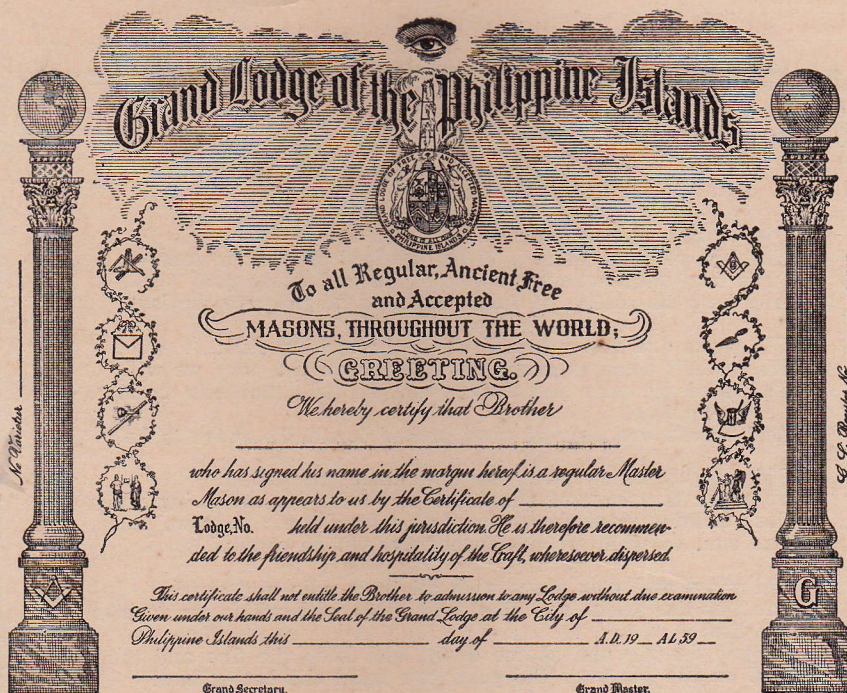 Grand Lodge of the Philippine Islands
GRAND LODGE OF FREE AND ACCEPTED MASONS
PHILIPPINE ISLANDS
To all Regular, Ancient Free
and Accepted
MASONS, THROUGHOUT THE WORLD;
GREETING.
We hereby certify that Brother
who has signed his name in the margin hereof is a regular Master
Mason as appears to us by the Certificate of
Lodge, No. held under this jurisdiction. He is therefore recommen-
ded to the friendship and hospitality of the Craft, wheresoever dispersed.
This certificate shall not entitle the Brother to admission to any Lodge without due examination
Given under our hands and the Seal of the Grand Lodge at the City of
Philippine Islands this day of A.D. 19 A.L. 59
Grand Secretary.
Grand Master.
Ne Varietur
G
G
G